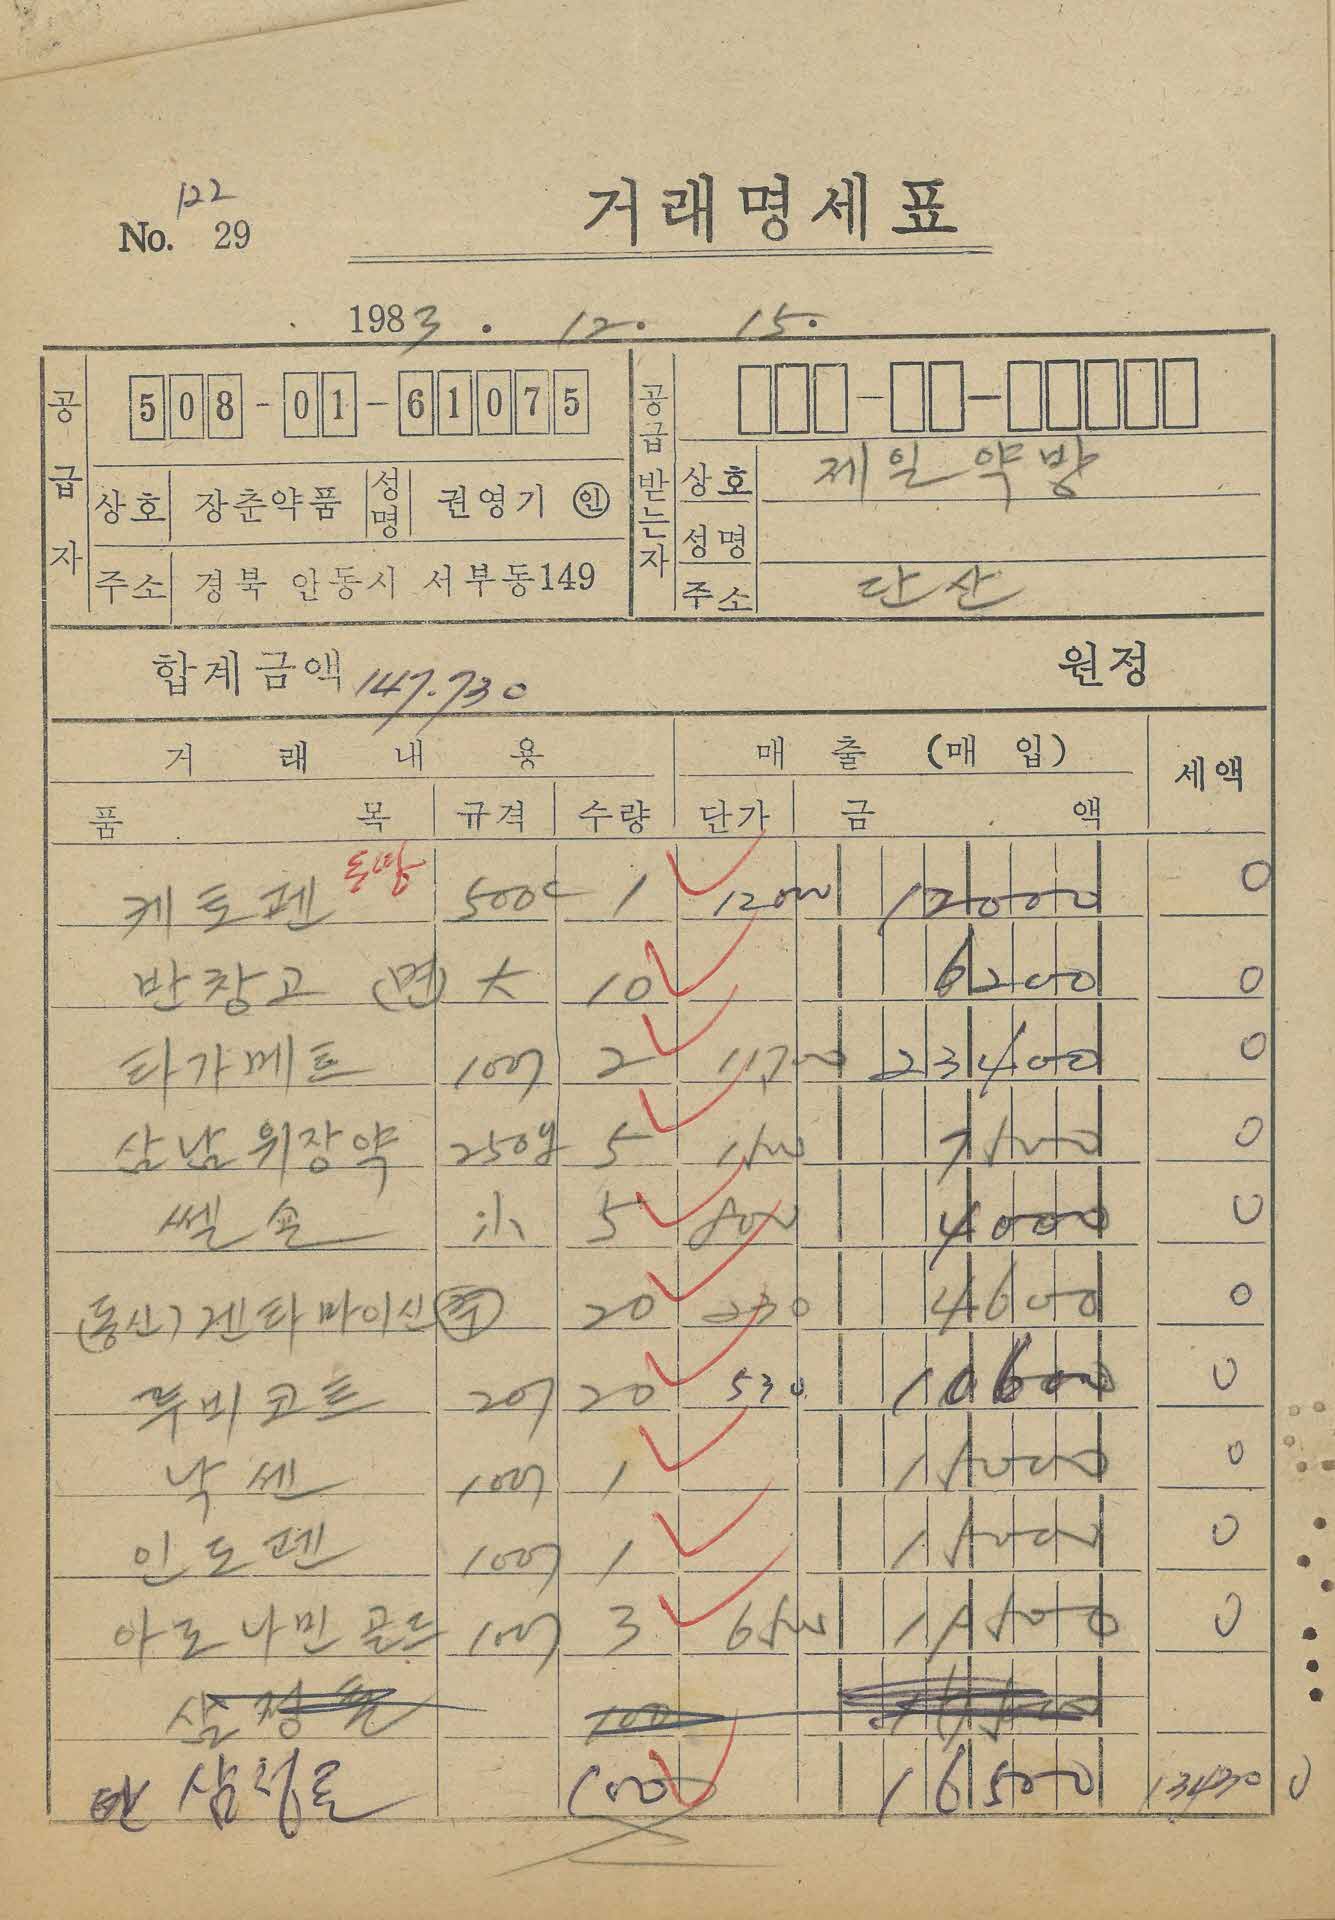 122
No. 29
거래명세표
1983. 12. 15.
공급자
508-01-61075
상호 장춘약품 성명 권영기 ㊞
주소 경북 안동시 서부동149
공급받는자
상호 제일약방
성명
주소 단산
합계금액 147.730 원정
거래내용 매출(매입) 세액
품목 규격 수량 단가 금액
케토펜 500c 1 12000 12000 0
반창고 (면) 大 10 6200 0
타가메트 100T 2 11700 23400 0
삼남위장약 250g 5 1500 7500 0
쎌손 小 5 800 4000 0
(동산) 겐타마이신 20 230 4600 0
루비코트 20T 20 530 10600 0
낙센 100T 1 15000 0
인도펜 100T 1 15000 0
아로나민골드 100T 3 6500 19500 0
100
삼청로 100 16500 13430 0